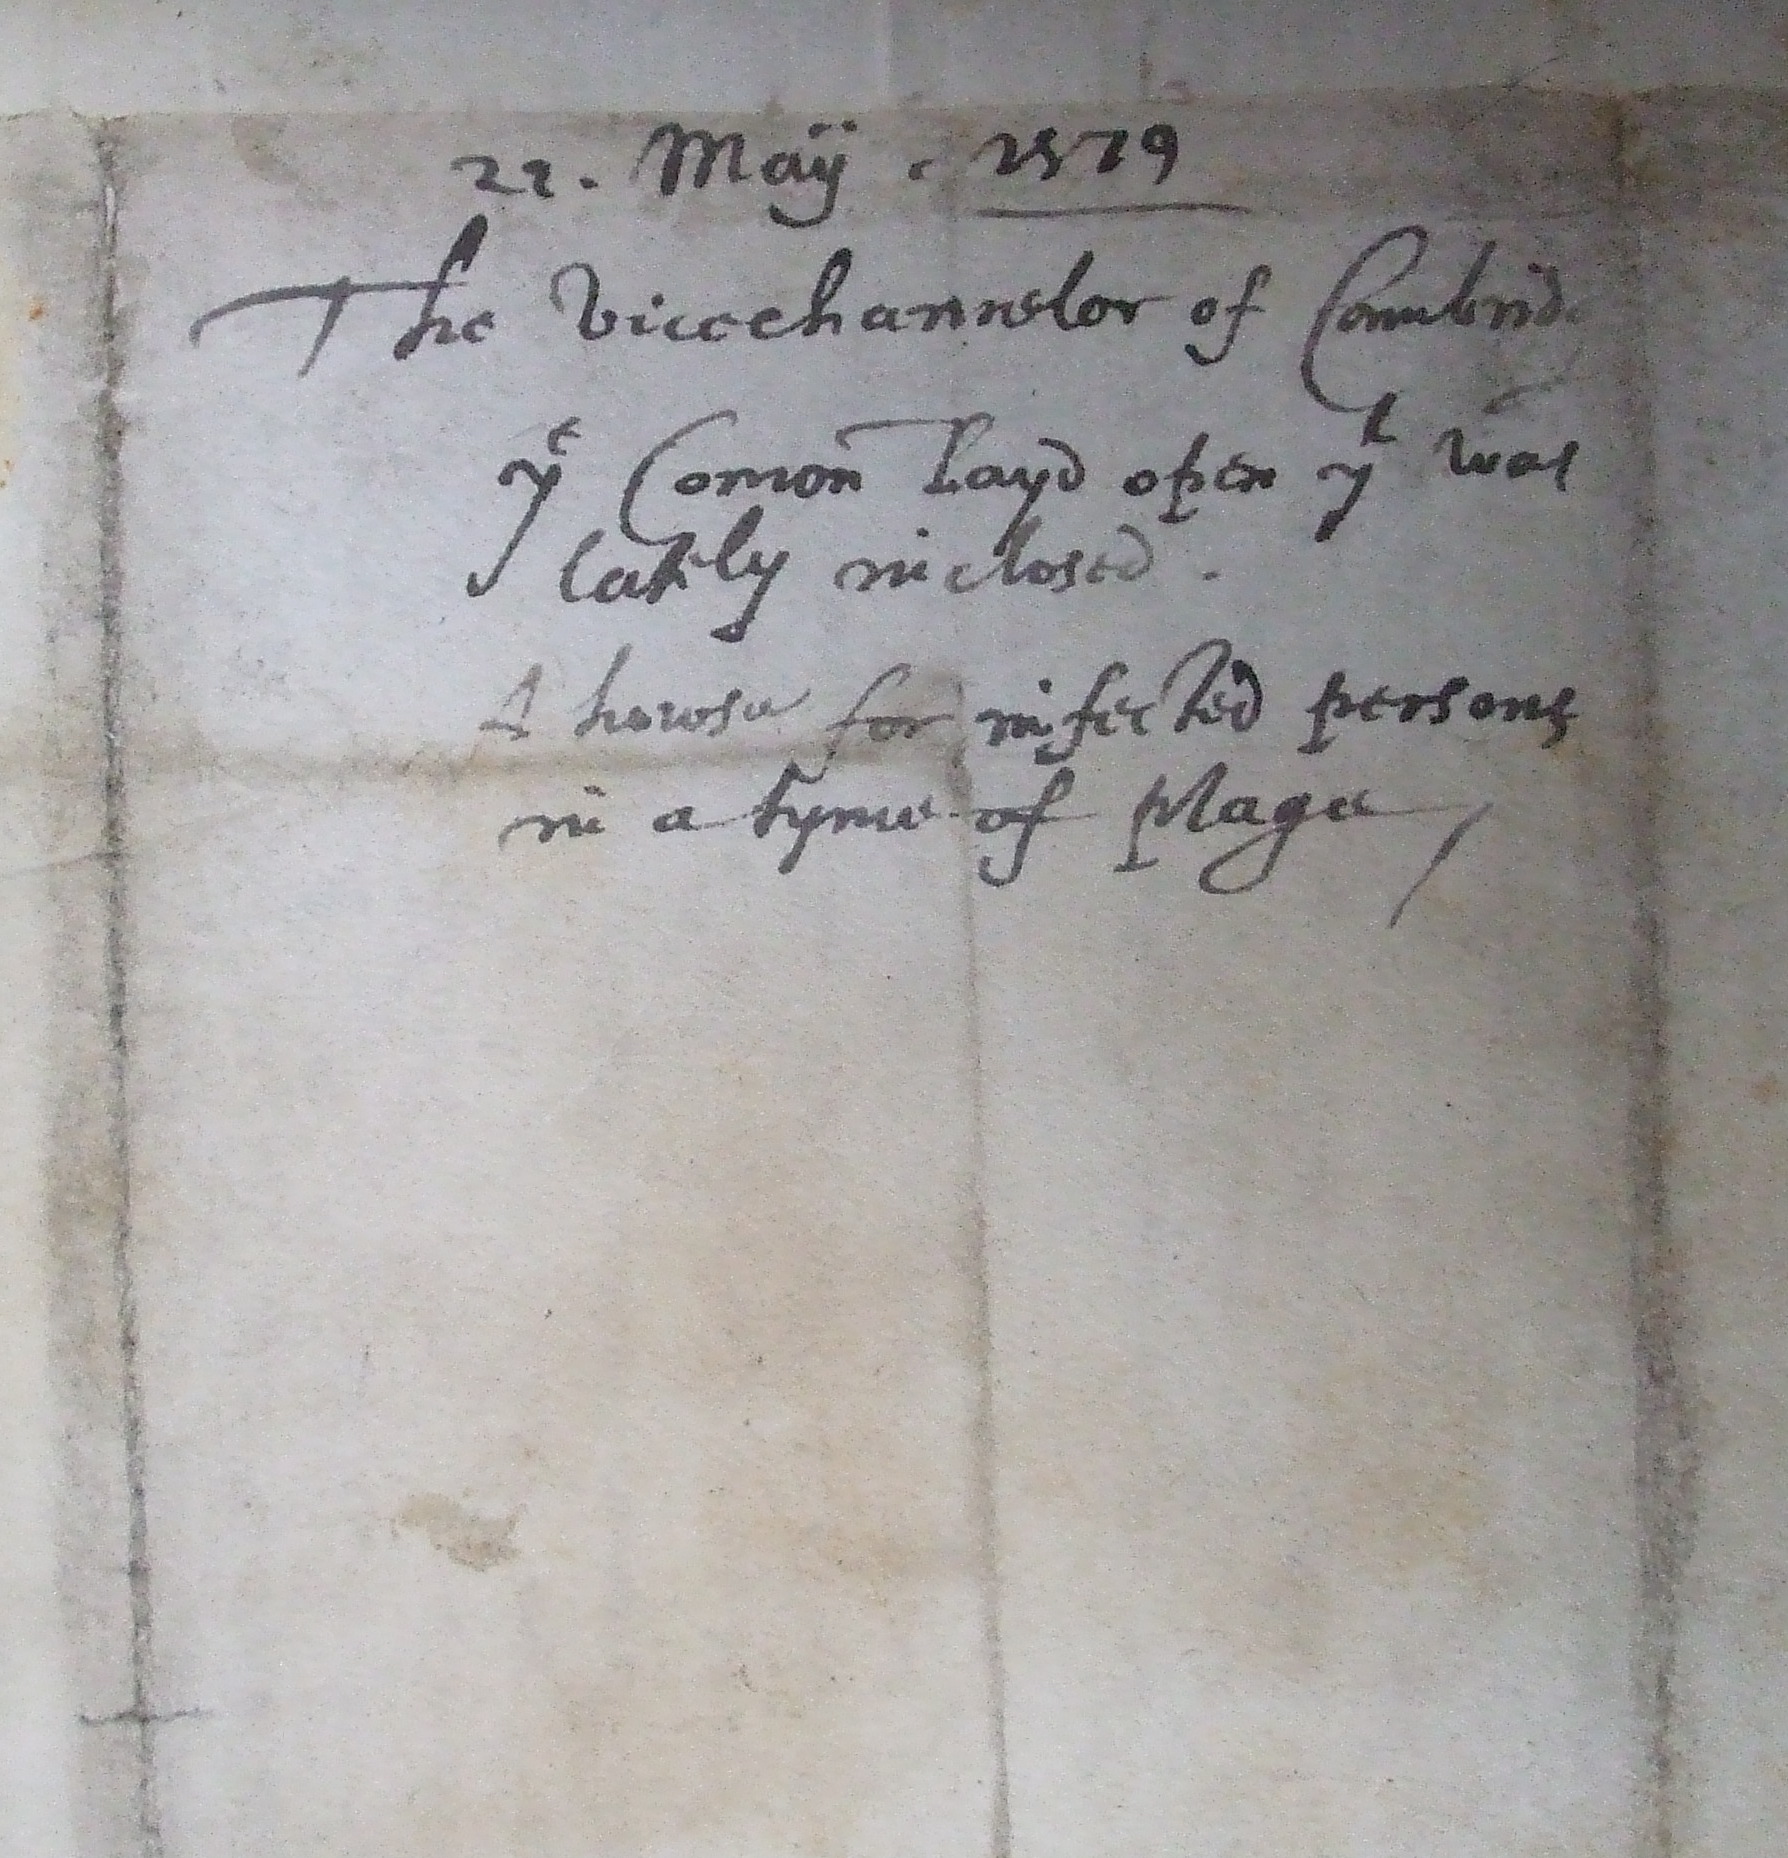 22. Maij . 1579
The vicechancelor of Cambrid.
yᵉ Comon layd open yᵗ was
lately inclosed.
A howse for infected persons
in a tyme of plage /